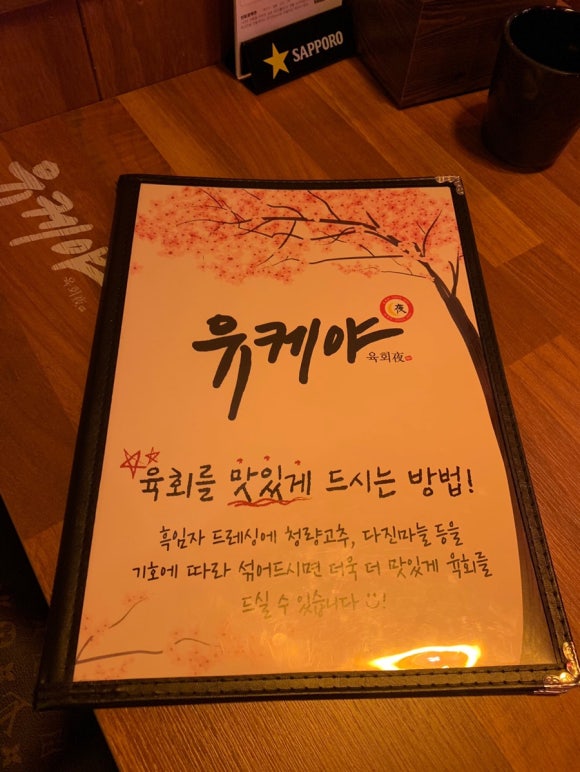 SAPPORO
유케야
육회夜
夜
유케야
육회夜
육회를 맛있게 드시는 방법!
흑임자 드레싱에 청량고추, 다진마늘 등을
기호에 따라 섞어드시면 더욱 더 맛있게 육회를
드실 수 있습니다 !